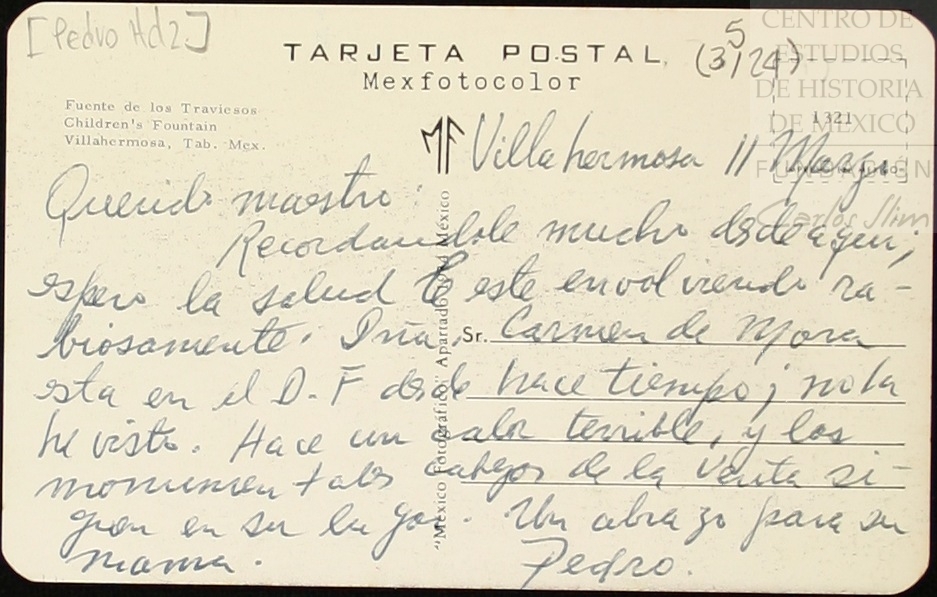 [Pedro Hdz.]
TARJETA POSTAL
Mexfotocolor
5
(3/24)
CENTRO DE
ESTUDIOS
DE HISTORIA
DE MÉXICO
FUNDACIÓN
Carlos Slim
1321
Fuente de los Traviesos
Children's Fountain
Villahermosa, Tab. Mex.
MF
Villahermosa 11 Marzo
Querido maestro:
Recordandole mucho desde aqui;
espero la salud le este envolviendo ra-
biosamente. Dña. Carmen de Mora
esta en el D.F desde hace tiempo; no la
he visto. Hace un calor terrible, y las
monumentales cabezas de la Venta si-
guen en su lugar. Un abrazo para su
mama.
Pedro.
Sr.
"México Fotográfico" Apartado México